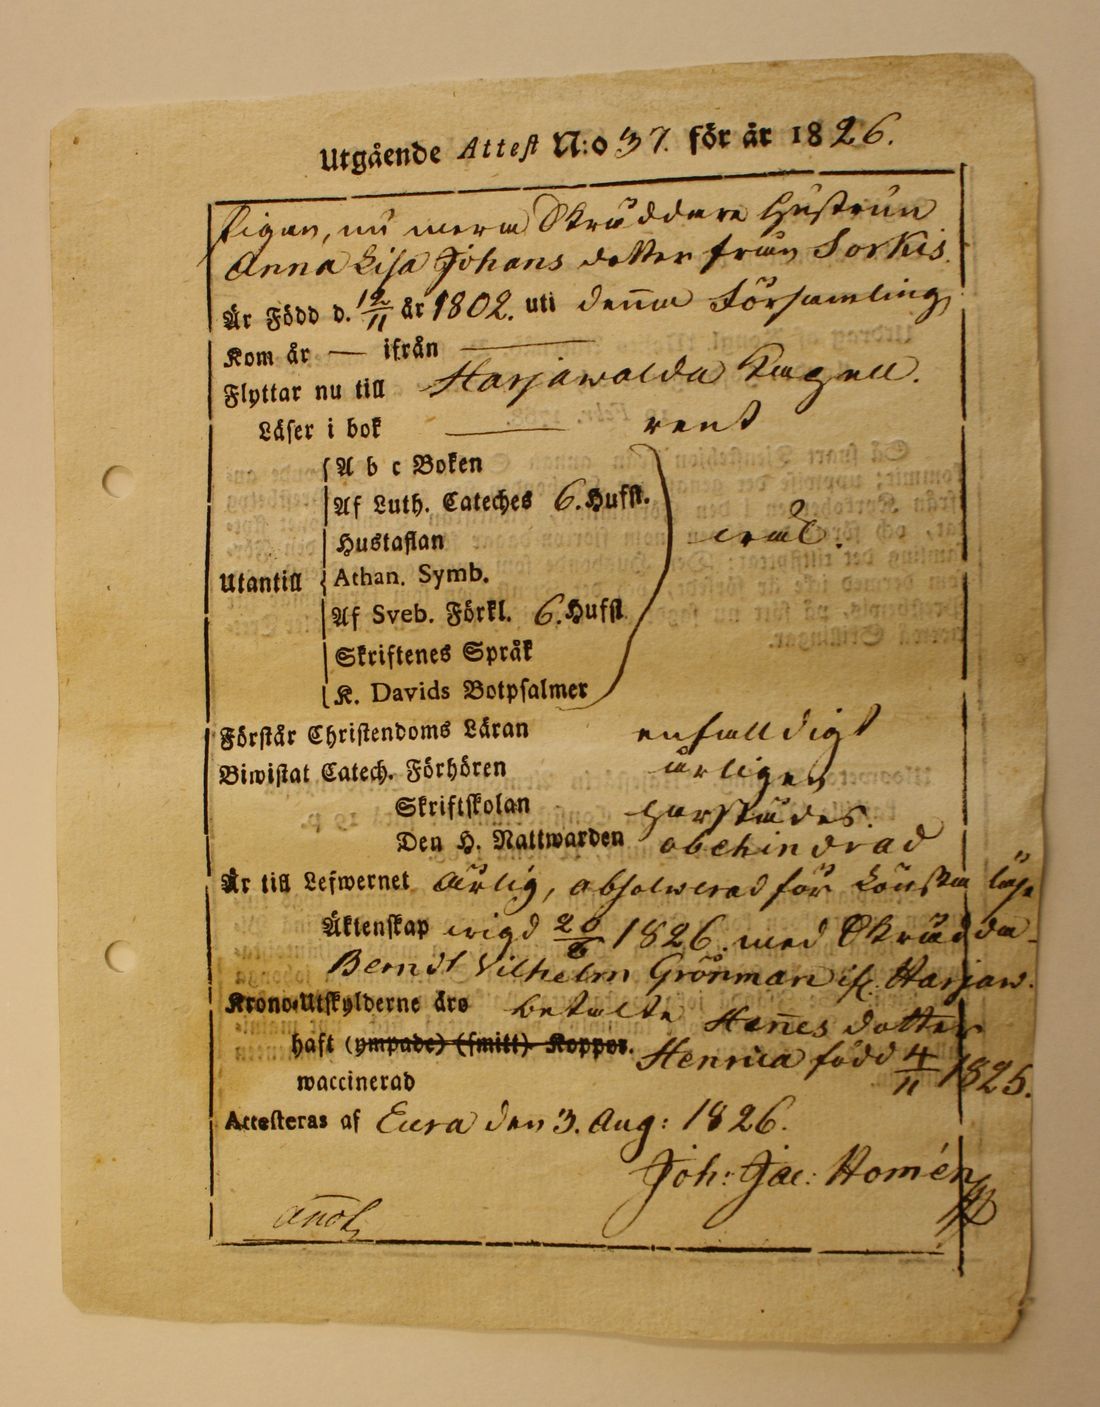 Utgående Attest N:o 37. för år 1826.
Pigan, nu mera Skräddare Hustrun
Anna Lisa Johans dotter från Sorkis.
Är Född d. 12/11 år 1802. uti denna Församling
Kom år — ifrån —
Flyttar nu till Harjawalda Capell.
Läser i bok — rent
A b c Boken
Af Luth. Cateches 6. Hufst.
Hustaflan wäl.
Utantill Athan. Symb.
Af Sveb. Förkl. 6. Hufst
Skriftenes Språk
K. Davids Botpsalmer
Förstår Christendoms Läran enfalldigt
Biwistat Catech. Förhören årligen
Skriftskolan härstädes.
Den H. Nattwarden obehindrad
Är till Lefwernet ärlig, absolwerad för
Äktenskap wigd 20/6 1826. med Skrädda-
Berndt Vilhelm Grönman i Harjaw.
Krono-Utskylderne äro betalte Hen̄es dotter
haft (ympade) (smitt) Koppor. Henrica född 4/11 1825.
waccinerad
Attesteras af Eura den 3. Aug: 1826.
Joh: Jac: Homén